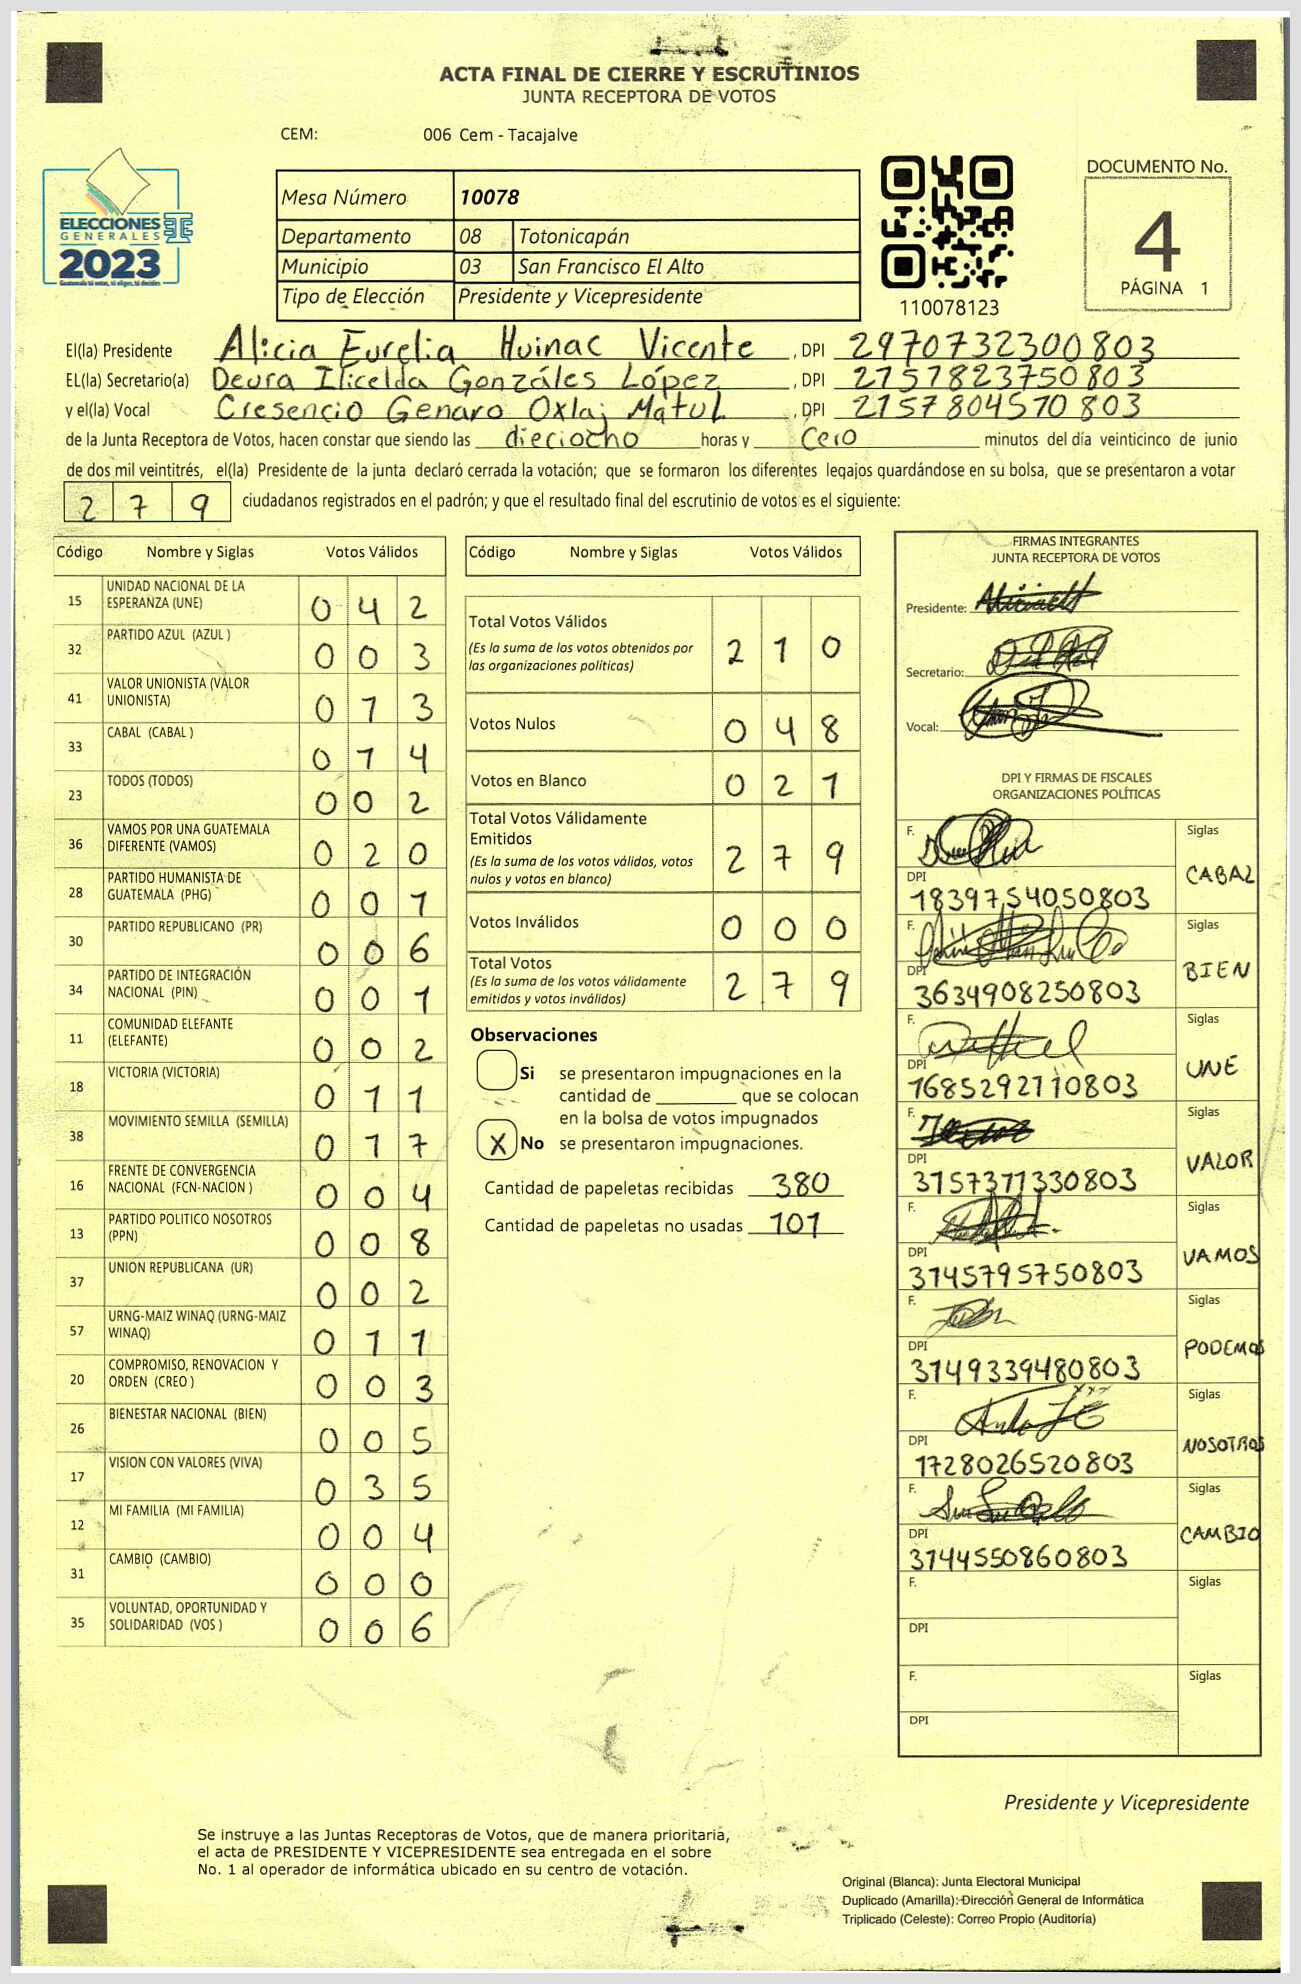 ACTA FINAL DE CIERRE Y ESCRUTINIOS
JUNTA RECEPTORA DE VOTOS
CEM: 006 Cem - Tacajalve
ELECCIONES
GENERALES
2023
Guatemala tú votas, tú eliges, tú decides
Mesa Número 10078
Departamento 08 Totonicapán
Municipio 03 San Francisco El Alto
Tipo de Elección Presidente y Vicepresidente
110078123
DOCUMENTO No.
4
PÁGINA 1
El(la) Presidente Alicia Eurelia Huinac Vicente , DPI 2970732300803
EL(la) Secretario(a) Deura Ilicelda Gonzáles López , DPI 2757823750803
y el(la) Vocal Cresencio Genaro Oxlaj Matul , DPI 2157804570803
de la Junta Receptora de Votos, hacen constar que siendo las dieciocho horas y Cero minutos del día veinticinco de junio
de dos mil veintitrés, el(la) Presidente de la junta declaró cerrada la votación; que se formaron los diferentes legajos quardándose en su bolsa, que se presentaron a votar
279 ciudadanos registrados en el padrón; y que el resultado final del escrutinio de votos es el siguiente:
Código Nombre y Siglas Votos Válidos
15 UNIDAD NACIONAL DE LA ESPERANZA (UNE) 042
32 PARTIDO AZUL (AZUL ) 003
41 VALOR UNIONISTA (VALOR UNIONISTA) 013
33 CABAL (CABAL ) 014
23 TODOS (TODOS) 002
36 VAMOS POR UNA GUATEMALA DIFERENTE (VAMOS) 020
28 PARTIDO HUMANISTA DE GUATEMALA (PHG) 001
30 PARTIDO REPUBLICANO (PR) 006
34 PARTIDO DE INTEGRACIÓN NACIONAL (PIN) 001
11 COMUNIDAD ELEFANTE (ELEFANTE) 002
18 VICTORIA (VICTORIA) 011
38 MOVIMIENTO SEMILLA (SEMILLA) 017
16 FRENTE DE CONVERGENCIA NACIONAL (FCN-NACION ) 004
13 PARTIDO POLITICO NOSOTROS (PPN) 008
37 UNION REPUBLICANA (UR) 002
57 URNG-MAIZ WINAQ (URNG-MAIZ WINAQ) 011
20 COMPROMISO, RENOVACION Y ORDEN (CREO ) 003
26 BIENESTAR NACIONAL (BIEN) 005
17 VISION CON VALORES (VIVA) 035
12 MI FAMILIA (MI FAMILIA) 004
31 CAMBIO (CAMBIO) 000
35 VOLUNTAD, OPORTUNIDAD Y SOLIDARIDAD (VOS ) 006
Código Nombre y Siglas Votos Válidos
Total Votos Válidos 210
(Es la suma de los votos obtenidos por
las organizaciones políticas)
Votos Nulos 048
Votos en Blanco 021
Total Votos Válidamente
Emitidos 279
(Es la suma de los votos válidos, votos
nulos y votos en blanco)
Votos Inválidos 000
Total Votos 279
(Es la suma de los votos válidamente
emitidos y votos inválidos)
Observaciones
Si se presentaron impugnaciones en la
cantidad de ________ que se colocan
en la bolsa de votos impugnados
X No se presentaron impugnaciones.
Cantidad de papeletas recibidas 380
Cantidad de papeletas no usadas 101
FIRMAS INTEGRANTES
JUNTA RECEPTORA DE VOTOS
Presidente:
Secretario:
Vocal:
DPI Y FIRMAS DE FISCALES
ORGANIZACIONES POLÍTICAS
F. Siglas
DPI 1839754050803 CABAL
F. Siglas
DPI 3634908250803 BIEN
F. Siglas
DPI 1685292110803 UNE
F. Siglas
DPI 3157371330803 VALOR
F. Siglas
DPI 3145795750803 VAMOS
F. Siglas
DPI 3149339480803 PODEMOS
F. Siglas
DPI 1728026520803 NOSOTROS
F. Siglas
DPI 3144550860803 CAMBIO
F. Siglas
DPI
F. Siglas
DPI
Presidente y Vicepresidente
Se instruye a las Juntas Receptoras de Votos, que de manera prioritaria,
el acta de PRESIDENTE Y VICEPRESIDENTE sea entregada en el sobre
No. 1 al operador de informática ubicado en su centro de votación.
Original (Blanca): Junta Electoral Municipal
Duplicado (Amarilla): Dirección General de Informática
Triplicado (Celeste): Correo Propio (Auditoría)